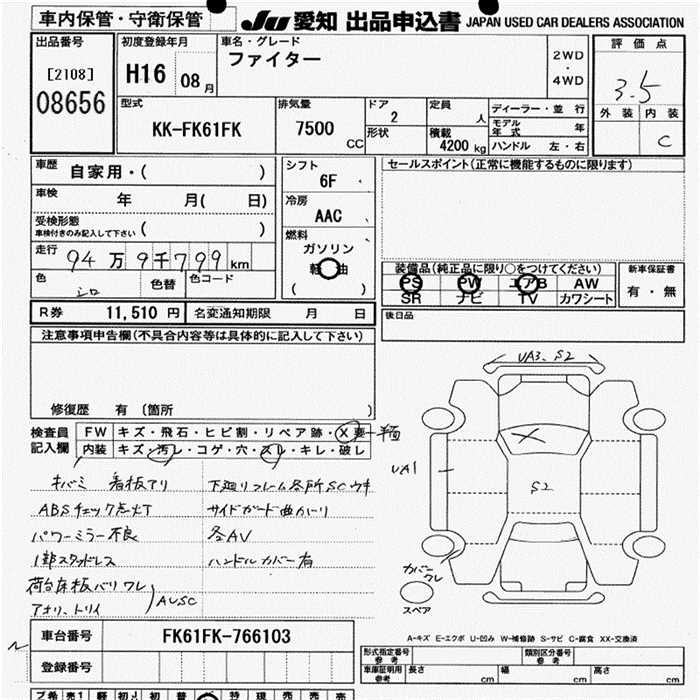 車内保管・守衛保管
JU 愛知 出品申込書 JAPAN USED CAR DEALERS ASSOCIATION
出品番号
[2108]
08656
初度登録年月
H16 08月
車名・グレード
ファイター
2WD
・
4WD
評価点
3.5
外装 内装
C
型式
KK-FK61FK
排気量
7500
CC
ドア
2
形状
定員
人
積載
4200 kg
ディーラー・並行
モデル年式 年
ハンドル 左・右
車歴 自家用・( )
車検 年 月( 日)
受検形態
車検付きのみ記入して下さい ( )
走行 94万9千799km
色 シロ 色替 色コード
シフト
6F
冷房
AAC
燃料
ガソリン
軽油
( )
セールスポイント(正常に機能するものに限ります)
装備品(純正品に限り○をつけてください)
PS PW エアB AW
SR ナビ TV カワシート
新車保証書
有・無
R券 11,510円 名変通知期限 月 日
後日品
注意事項申告欄(不具合内容等は具体的に記入して下さい)
修復歴 有 〔箇所 〕
検査員記入欄
FW キズ・飛石・ヒビ割・リペア跡・X要
内装 キズ・汚レ・コゲ・穴・スレ・キレ・破レ
キバミ 看板アリ
ABSチェック点灯
パワーミラー不良
1部スタッドレス
荷台床板バリワレ
アオリ、トリイ
AUSC
下廻リフレーム各所SCウキ
サイドガード曲ガリ
各AU
ハンドルカバー有
UA3、S2
UA1
S2
カバーワレ
スペア
A-キズ E-エクボ U-凹み W-補修跡 S-サビ C-腐食 XX-交換済
車台番号 FK61FK-766103
登録番号
形式指定番号 参考
類別区分番号 参考
車庫証明用 参考 長さ cm 幅 cm 高さ cm